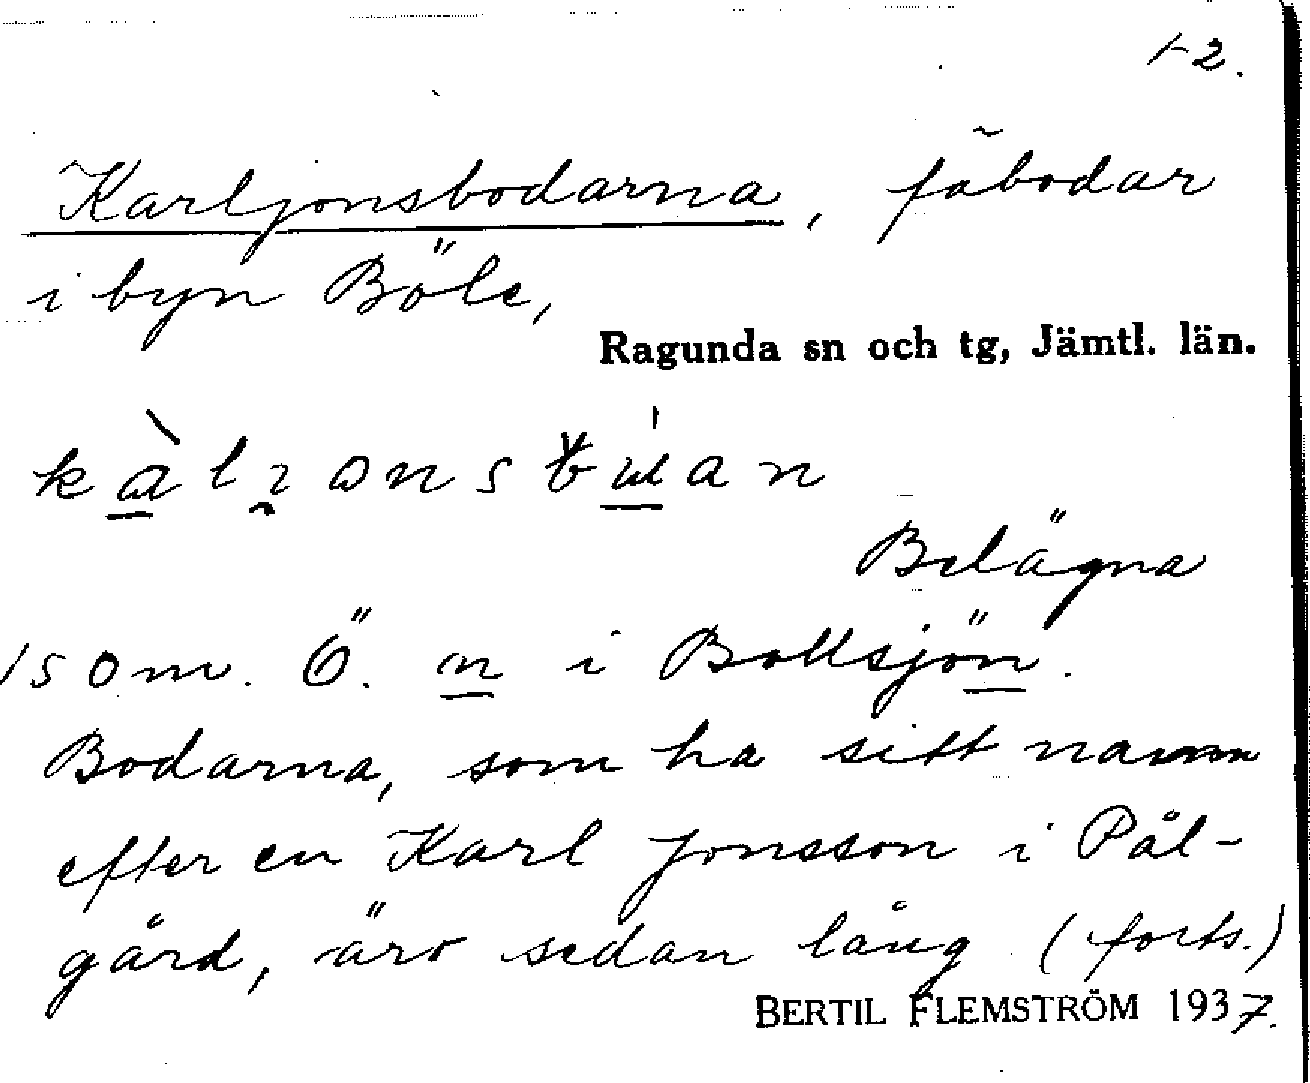 1-2.
Karljonsbodarna, fäbodar
i byn Böle,
Ragunda sn och tg, Jämtl. län.
Belägna
150 m. Ö. m i Bollsjön.
Bodarna, som ha sitt namn
efter en Karl Jonsson i Pål-
gård, äro sedan lång (forts.)
BERTIL FLEMSTRÖM 1937.